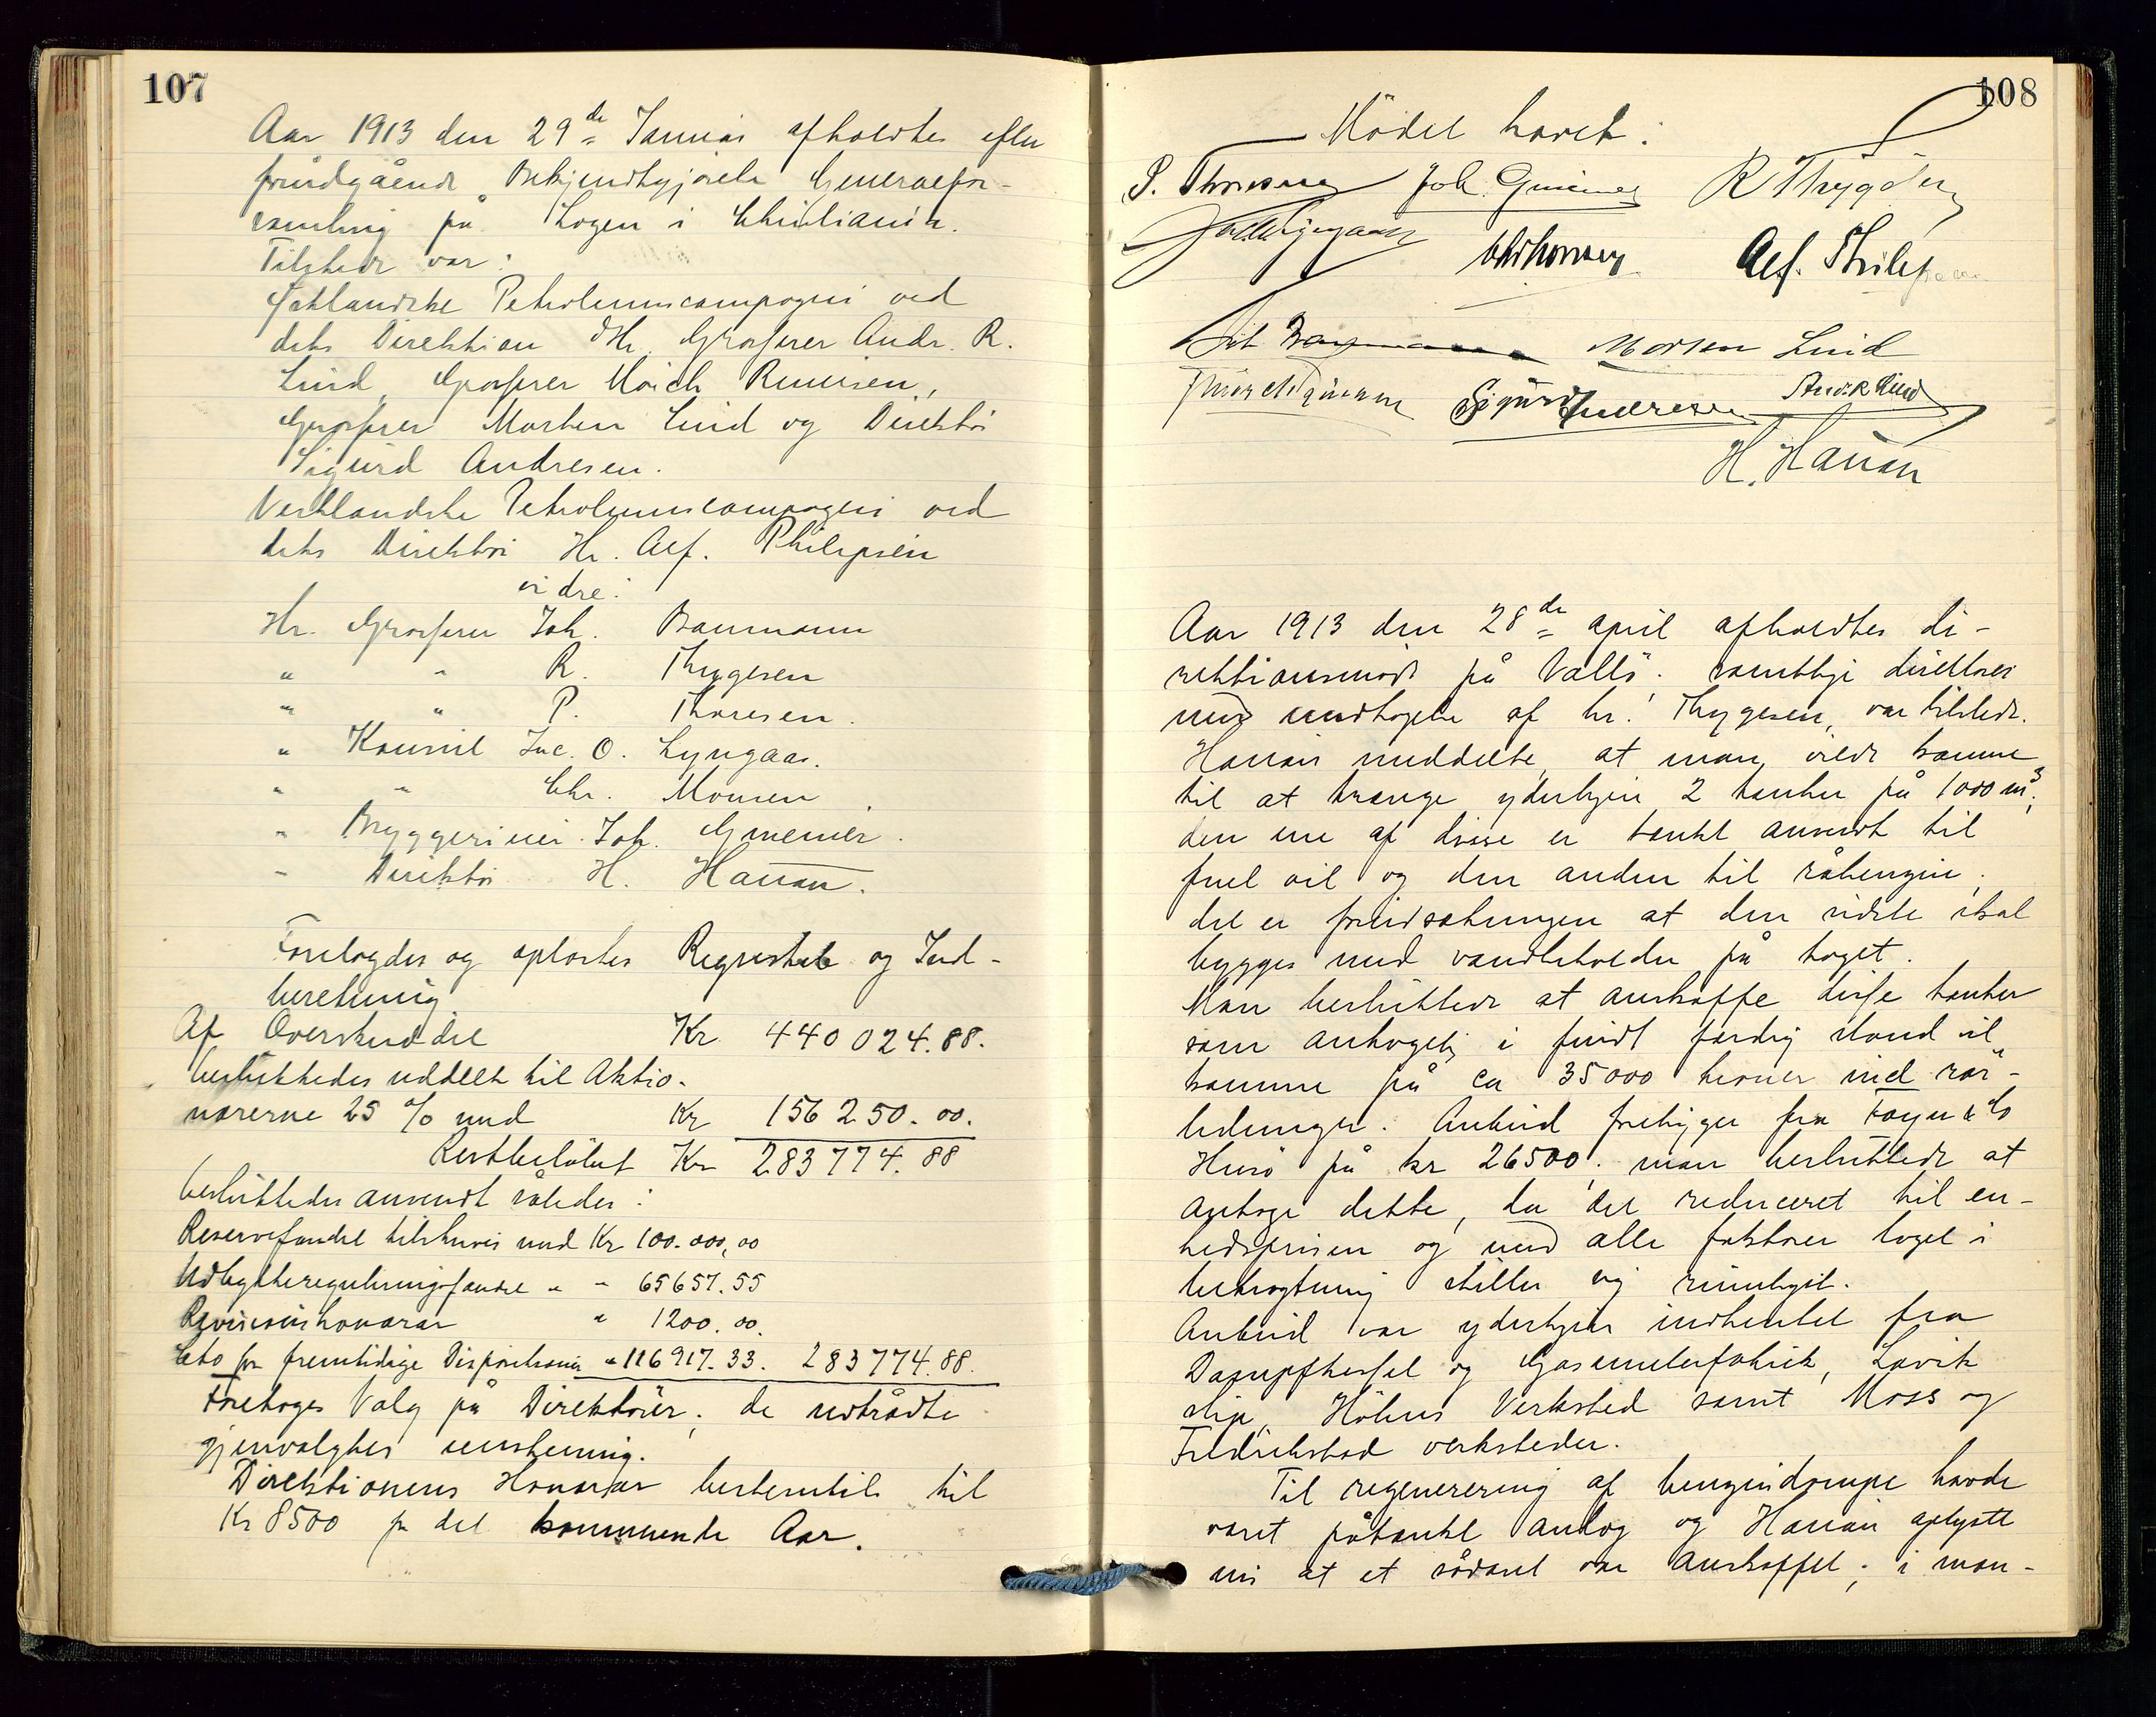 107
Aar 1913 den 29de Januar afholdtes efter
forudgående Bekjendtgjörelse Generalfor-
samling på Logen i Christiania.
Tilstede var:
Østlandske Petroleumscompagni ved
dets Direktion Hr. Grosserer Andr. R.
Lind, Grosserer
Grosserer Morten Lind og Direktör
Sigurd Andresen.
Vestlandske Petroleumscompagni ved
dets Direktör Hr. Alf. Philipsen
vidre:
Hr. Grosserer Joh. Baumann
" " R. Thygesen
" " P. Thoresen.
" Konsul Jac. O. Lyngaas.
" " Chr. Monsen.
" Bryggerieier Joh. Gmeiner.
" Direktör H. Hauan.
Forelagdes og oplæstes Regnskab og Ind-
beretning
Af Overskuddet Kr 440 024.88.
besluttedes uddelt til Aktio-
nærerne 25 % med Kr 156 250.00.
Restbelöbet Kr 283 774.88
besluttedes anvendt således:
Reservefondet tilskrives med Kr 100.000,00
Udbyttereguleringsfondet " " 65657.55
Revisionshonorar " 1200.00.
Cto for fremtidige Dispositioner " 116917.33. 283774.88.
Foretoges Valg på Direktörer; de udtrådte
gjenvalgtes enstemmig.
Direktionens Honorar bestemtes til
Kr 8500 for det kommende Aar.
108
Mödet hævet.
P. Thoresen Joh. Gmeiner R Thygesen
Jac. O. Lyngaas Chr Monsen Alf. Philipsen
Joh Baumann Morten Lind
Sigurd Andresen Andr. R Lind
H. Hauan
Aar 1913 den 28de april afholdtes di-
rektionsmöde på Vallö. samtlige direktører
med undtagelse af hr. Thygesen, var tilstede.
Hauan meddelte, at man vilde komme
til at trænge yderligere 2 tanker på 1000 m³;
den ene af disse er tænkt anvendt til
fuel oil og den anden til råbenzin;
det er forudsætningen at den sidste skal
bygges med vandbeholder på taget.
Man besluttede at anskaffe disse tanker
som antagelig i fuldt færdig stand vil
komme på ca 35000 kroner incl rör-
ledninger. Anbud foreligger fra Fagen & Co
Husö på kr 26500; man besluttede at
antage dette, da det reduceret til en-
hedsprisen og med alle faktorer taget i
betragtning stiller sig rimeligst.
Anbud var yderligere indhentet fra
Dampfkessel og Gasometerfabrik,
slip, Höhns Verksted samt Moss og
Fredrikstad verksteder.
Til regenerering af benzindampe havde
været påtænkt anlæg og Hauan oplyste
nu at et sådant var anskaffet; i man-